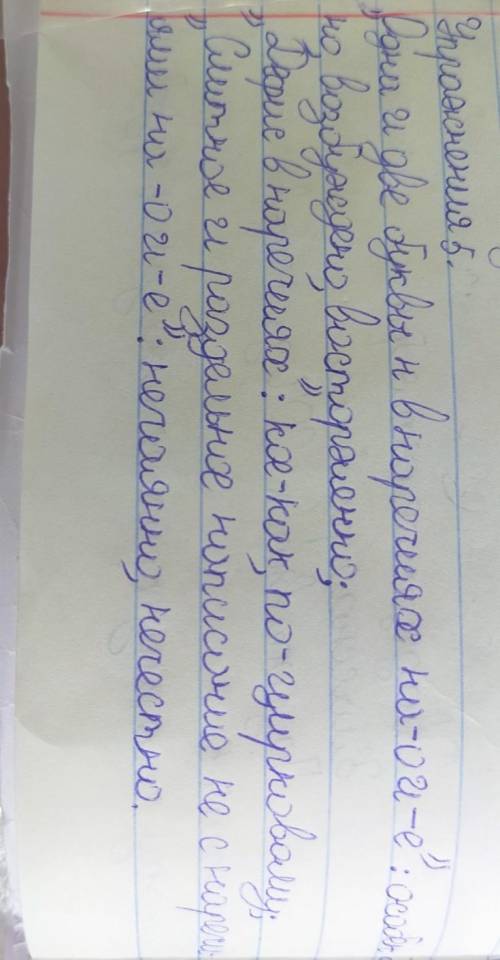 Упражнения 5.
„Одна и две буквы н в наречиях на -о и -е": особен
но возбуждено, восторженно;
„Дефис в наречиях: кое-как, по-цирковому;
„Слитное и раздельное написание не с наречи
ями на -о и -е": нечаянно, нечестно.